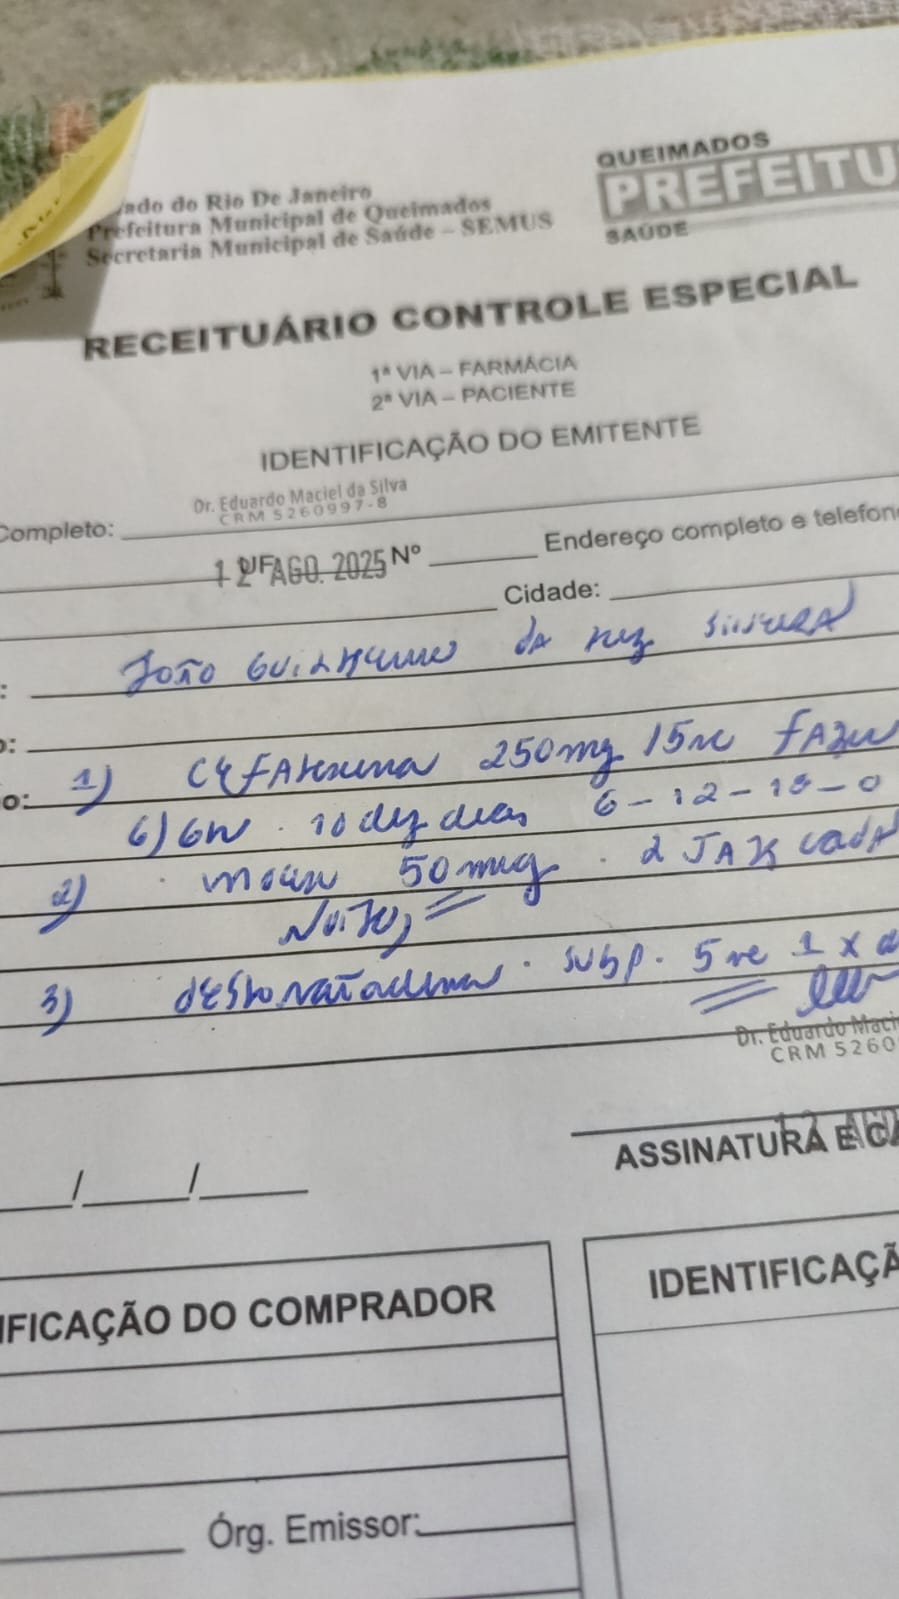 ado do Rio De Janeiro
Prefeitura Municipal de Queimados
Secretaria Municipal de Saúde – SEMUS
QUEIMADOS
PREFEITU
SAÚDE
RECEITUÁRIO CONTROLE ESPECIAL
1ª VIA – FARMÁCIA
2ª VIA – PACIENTE
IDENTIFICAÇÃO DO EMITENTE
Completo:
Dr. Eduardo Maciel da Silva
CRM 5260997-8
12 AGO. 2025 Nº Endereço completo e telefon
Cidade:
João Guilherme da Silveira
o:
o: 1) Cefalexina 250mg 15 fazer
6/6h . 10 dez dias 6-12-18-0
2) 50mcg . 2 cada
Noite,
3) desloratadina . susp. 5 1 x
Dr. Eduardo Maci
CRM 5260
ASSINATURA E CA
/ /
IFICAÇÃO DO COMPRADOR
IDENTIFICAÇÃ
Órg. Emissor: